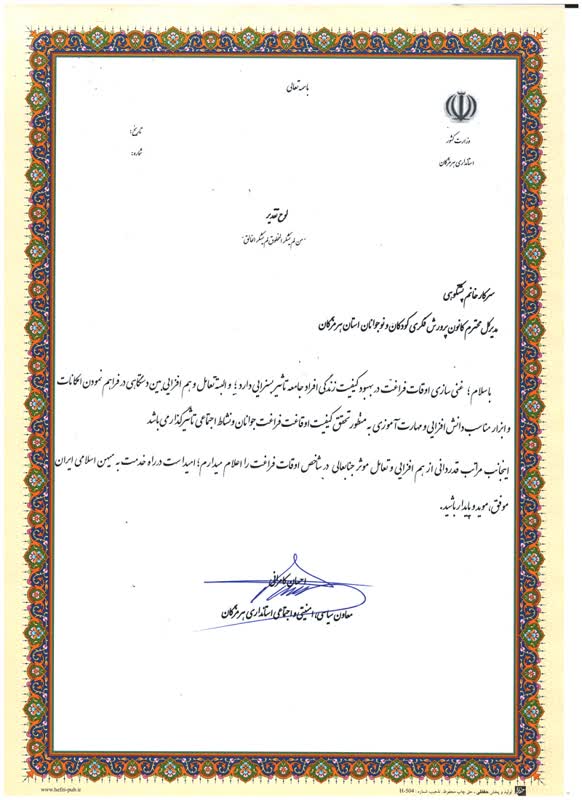 باسمه تعالی
وزارت کشور
استانداری هرمزگان
تاریخ:
شماره:
لوح تقدیر
"من لم یشکر المخلوق لم یشکر الخالق"
سرکار خانم پشتکوهی
مدیرکل محترم کانون پرورش فکری کودکان و نوجوانان استان هرمزگان
باسلام؛ غنی سازی اوقات فراغت در بهبود کیفیت زندگی افراد جامعه تاثیر بسزایی دارد؛ و البته تعامل و هم افزایی بین دستگاهی در فراهم نمودن امکانات
و ابزار مناسب دانش افزایی و مهارت آموزی به منظور تحقق کیفیت اوقافت فراغت جوانان و نشاط اجتماعی تأثیرگذار می باشد
اینجانب مراتب قدردانی از هم افزایی و تعامل موثر جنابعالی در شاخص اوقات فراغت را اعلام میدارم؛ امید است در راه خدمت به میهن اسلامی ایران
موفق، موید و پایدار باشید.
احسان کامرانی
معاون سیاسی، امنیتی و اجتماعی استانداری هرمزگان
www.hefti-pub.ir
تولید و پخش حفظی - حق چاپ محفوظ. شماره: H-504